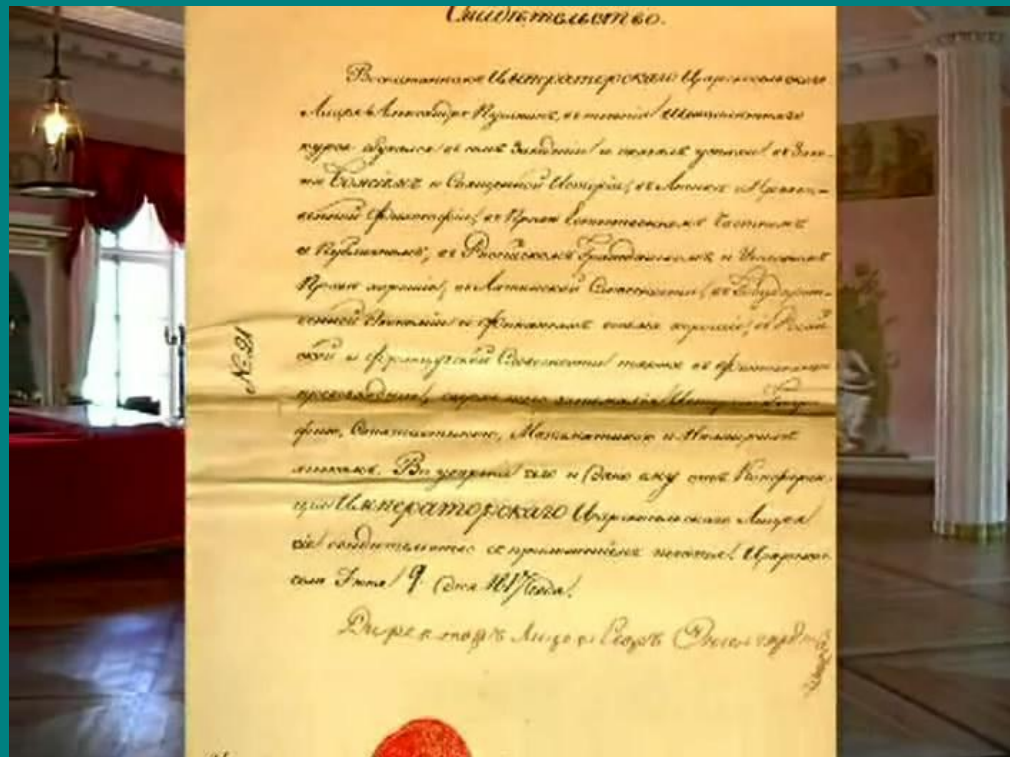 Свидѣтельство.
Воспитанникъ Императорскаго Царскосельскаго
Лицея Александръ Пушкинъ, въ теченіи шестилѣтняго
курса обучался въ семъ Заведеніи и оказалъ успѣхи: въ Зако-
нѣ Божіемъ и Священной Исторіи, въ Логикѣ и Нравст-
венной Философіи, въ Правѣ Естественномъ Частномъ
и Публичномъ, въ Россійскомъ Гражданскомъ и Уголовномъ
Правѣ хорошіе; въ Латинской Словесности, въ Государст-
венной Экономіи и Финансовъ весьма хорошіе; въ Россій-
ской и Французской Словесности также въ Фехтованіи
превосходные; сверхъ того занимался Исторіею, Геогра-
фіею, Статистикою, Математикою и Нѣмецкимъ
языкомъ. Во увѣреніе чего и дано ему отъ Конферен-
ціи Императорскаго Царскосельскаго Лицея
сіе свидѣтельство съ приложеніемъ печати. Царское
село Іюня 9 дня 1817 года.
Директоръ Лицея Егоръ Энгельгардтъ
№ 21